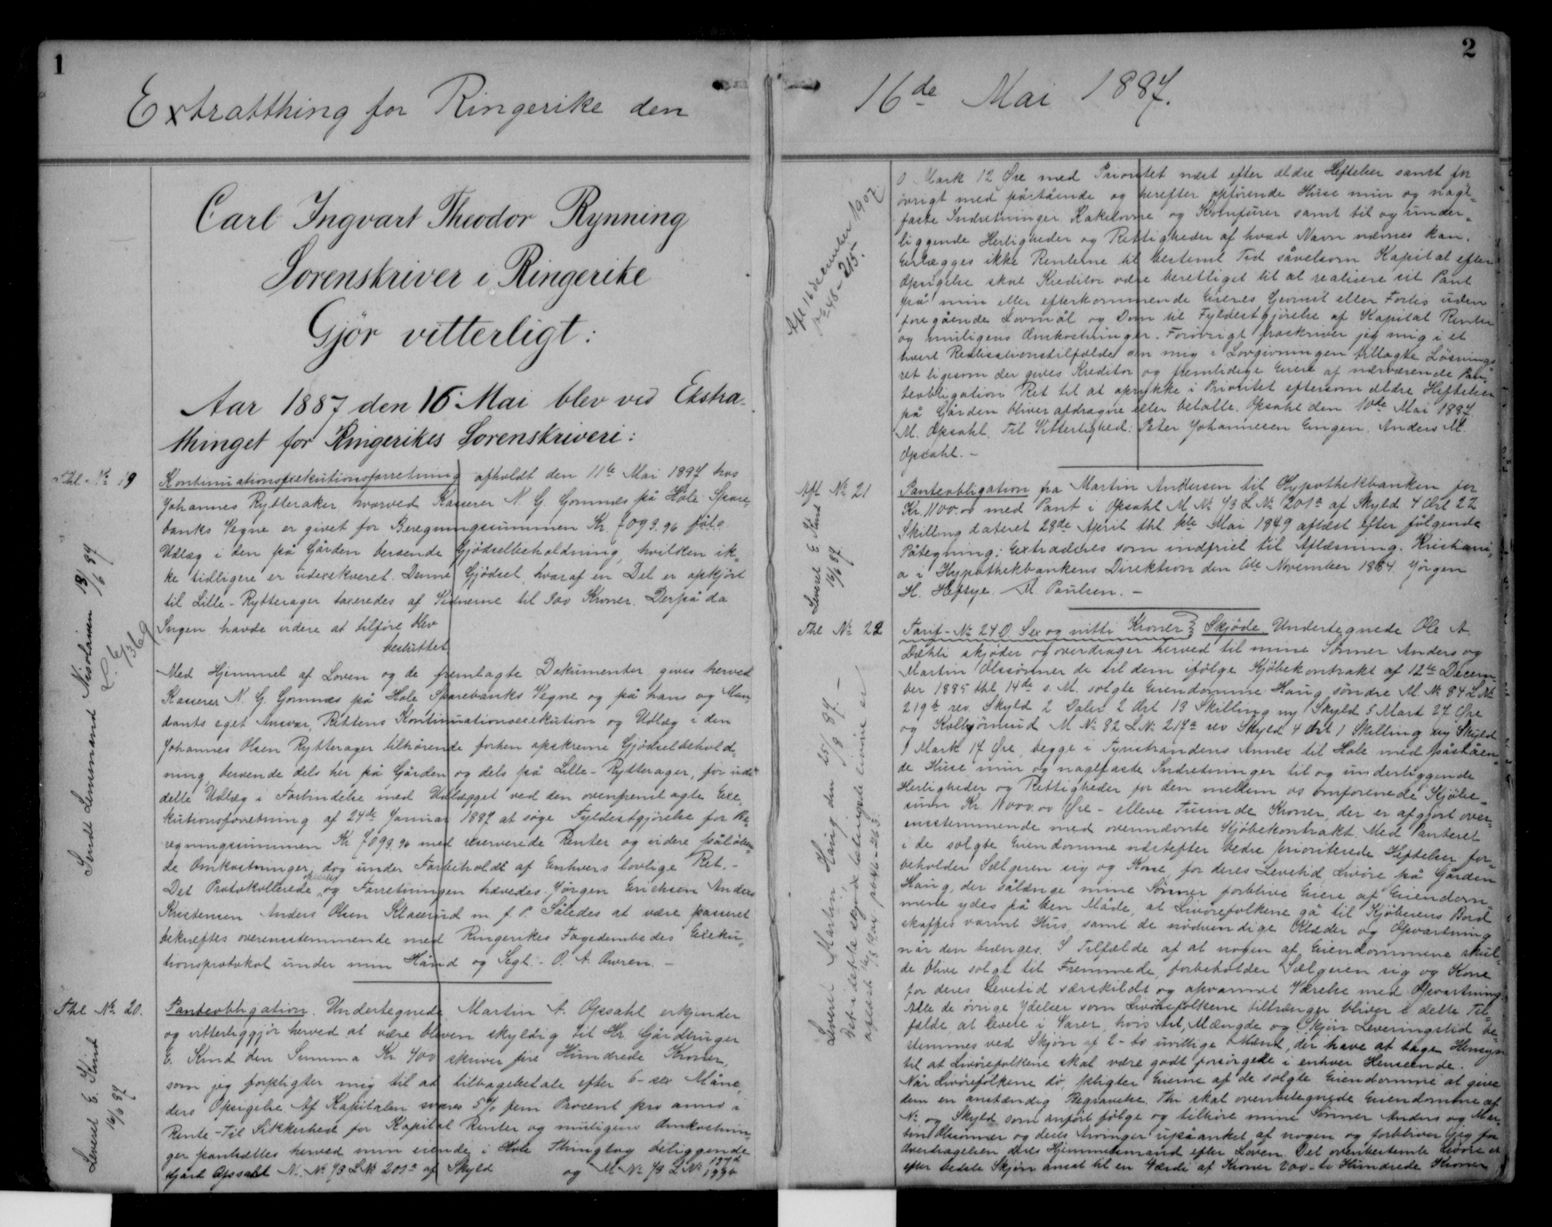 1
Extratthing for Ringerike den
Carl Ingvart Theodor Rynning
Sorenskriver i Ringerike
Gjør vitterligt:
Aar 1887 den 16 Mai blev ved Ekstra-
thinget for Ringerikes Sorenskriveri:
Thl. No 19
Kontinuationsexekutionsforretning afholdt den 11te Mai 1887 hos
Johannes Rytteraker, hvorved Kasserer N. G. Gomnæs på Hole Spare
banks Vegne er givet for Beregningssummen Kr 7099.96
Udlæg i den på Gården beroende Gjødselbeholdning, hvilken ik-
ke tidligere er udexekveret. Denne Gjødsel, hvoraf en Del er opkjørt
til Lille-Rytterager taxeredes af Vidnerne til 300 Kroner. Derpå da
Ingen havde videre at tilføre blev
besluttet
Med Hjemmel af Loven og de fremlagte Dokumenter gives herved
Kasserer N. G. Gomnæs på Hole Sparebanks Vegne og på hans og Man
dants eget Ansvar, Rettens Kontinuationsexekution og Udlæg i den
Johannes Olsen Rytterager tilhørende forhen opskrevne Gjødselbehold-
ning, beroende dels her på Gården og dels på Lille-Rytterager, for ud
dette Udlæg i Forbindelse med Udlægget ved den ovenpemeldte Exe
kutionsforretning af 24de Januar 1887 at søge Fyldestgjørelse for Be
regningssummen Kr 7099.96 med reserverede Renter og videre påløben
de Omkostninger, dog under Forbehold af Enhvers lovlige Ret.-
Det Protokollerede oplæst og Forretningen hævedes. Jørgen Erichsen Anders
Kristensen Anders Olsen Klaserud m. f. P. Således at være passeret
bekræftes overensstemmende med Ringerikes Fogedembedes Exeku-
tionsprotokol under min Hånd og Segl.- O. A. Owren.-
Sendt Lensmand Nicolaisen 13/6 87
Thl No 20.
Panteobligation. Undertegnede Martin A. Opsahl erkjender
og vitterliggjør herved at være bleven skyldig til Hr. Gårdbruger
E. Kind den Summa Kr 400 skriver fire Hundrede Kroner,
som jeg forpligter mig til at tilbagebetale efter 6-sex Måne
ders Opsigelse. Af Kapitalen svares 5% fem Procent pro anno i
Rente - Til Sikkerhed for Kapital Renter og muligens Omkostnin-
ger pantsættes herved min eiende i Hole Thinglag beliggende
Gård Opsahl M. No 73 L No 201a af Skyld og M No 73 L No
Leveret E. Kind
16/6 87
2
16de Mai 1887.
0 Mark 12 Øre med Prioritet næst efter ældre Heftelser samt for
øvrigt med påstående og herefter opførende Huse mur og nagl-
faste Indretninger Kakelovne og Komfurer samt til og under-
liggende Herligheder og Rettigheder af hvad Navn nævnes kan.
Erlægges ikke Renterne til bestemt Tid såvelsom Kapital efter
Opsigelse skal Kreditor være berettiget til at realisere sit Pant
fra min eller efterkommende Eieres Gevinst eller Forlis uden
foregående Lovmål og Dom til Fyldestgjørelse af Kapital Renter
og muligens Omkostninger. Forøvrigt fraskriver jeg mig i et
hvert Realisationstilfælde den mig i Lovgivningen tillagte Løsnings
ret ligesom der gives Kreditor og fremtidige Eiere af nærværende Pan-
teobligation Ret til at oprykke i Prioritet eftersom ældre Heftelser
på Gården bliver afdragne eller betalte. Opsahl den 10de Mai 1887
M. Opsahl. Til Vitterlighed: Peter Johannesen Engen. Anders M.
Opsahl.-
Afl. 16 december 1907
No 48-215.
Afl. No 21
Panteobligation fra Martin Andersen til Hypothekbanken for
Kr 1100.00 med Pant i Opsahl M No 73 L No 201a af Skyld 4 Ort 22
Skilling dateret 28de April thl Mai 1849 aflæst efter følgende
Påtegning: Extraderes som indfriet til Aflæsning. Kristiani-
a i Hypothekbankens Direktion den November 1884. Jørgen
H. Heftye. M Paulsen.-
Leveret E. Kind
16/6 87
Thl No 22
Tarif-No 240. Sex og nitti Kroner. Skjøde. Undertegnede Ole A.
Dæhli skjøder og overdrager herved til mine Sønner Anders og
Martin Olssønner de til dem ifølge Kjøbekontrakt af 12te Decem
ber 1885 thl 14de s. M. solgte Eiendomme Haug søndre M No 84 L No
219b rev. Skyld 2 Daler 2 Ort 13 Skilling ny Skyld 5 Mark 27 Øre
og Kolbjörnrud M No 82 L No 217a rev Skyld 4 Ort 1 Skilling ny Skyld
1 Mark 17 Øre, begge i Tyristrandens Annex til Hole med påståen-
de Huse mur og naglfaste Indretninger til og underliggende
Herligheder og Rettigheder for den mellem os omforenede Kjøbe-
sum Kr 11000.00 Øre - elleve Tusinde Kroner, der er afgjort over-
ensstemmende med ovennævnte Kjøbekontrakt. Med Panteret
i de solgte Eiendomme næstefter bedre prioriterede Heftelser for-
beholder Sælgeren sig og Kone, for deres Levetid Livøre på Gården
Haug, der sålænge mine Sønner forblive Eiere af Eiendom-
mene ydes på den Måde, at Livørefolkene gå til Kjøbernes Bord
skaffes varmt Hus, samt de nødvendige Klæder og Opvartning
når den trænges. I Tilfælde af at nogen af Eiendommene skul-
de blive solgt til Fremmede, forbeholder Sælgeren sig og Kone
for deres Levetid særskildt og opvarmet Værelse med Opvartning
Alle de øvrige Ydelser som Livørefolkene tiltrænger bliver i dette Til-
fælde at levere i Varer, hvis Art, Mængde og Leveringstid be-
stemmes ved Skjøn af 2-to uvillige Mænd, der have at tage Hensyn
til at Livørefolkene skal være godt forsørgede i enhver Henseende.
Når Livørefolkene dø, pligter Eierne af de solgte Eiendomme at give
dem en anstændig Begravelse. Thi skal ovenbetegnede Eiendomme af
No og Skyld som anført følge og tilhøre mine Sønner Anders og Mar-
tin Olssønner og deres Arvinger upåanket af nogen og forbliver jeg for
Overdragelsen deres Hjemmelsmand efter Loven. Det ovenbestemte Livøre er
efter bedste Skjøn ansat til en Værdi af Kroner 200-to Hundrede Kroner
Leveret Martin Haug den 25/8 87.-